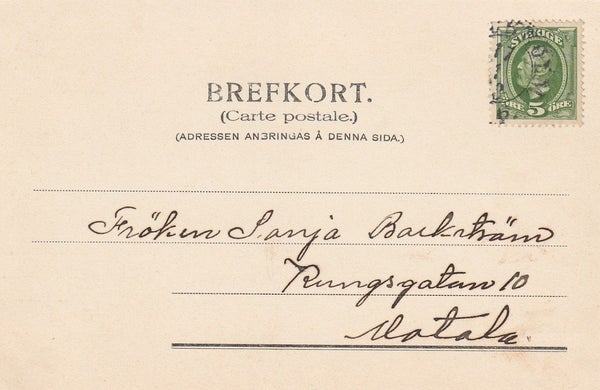 SVERIGE
ÖRE 5 ÖRE
BREFKORT.
(Carte postale.)
(ADRESSEN ANBRINGAS Å DENNA SIDA.)
Fröken Sanja Backström
Kungsgatan 10
Motala